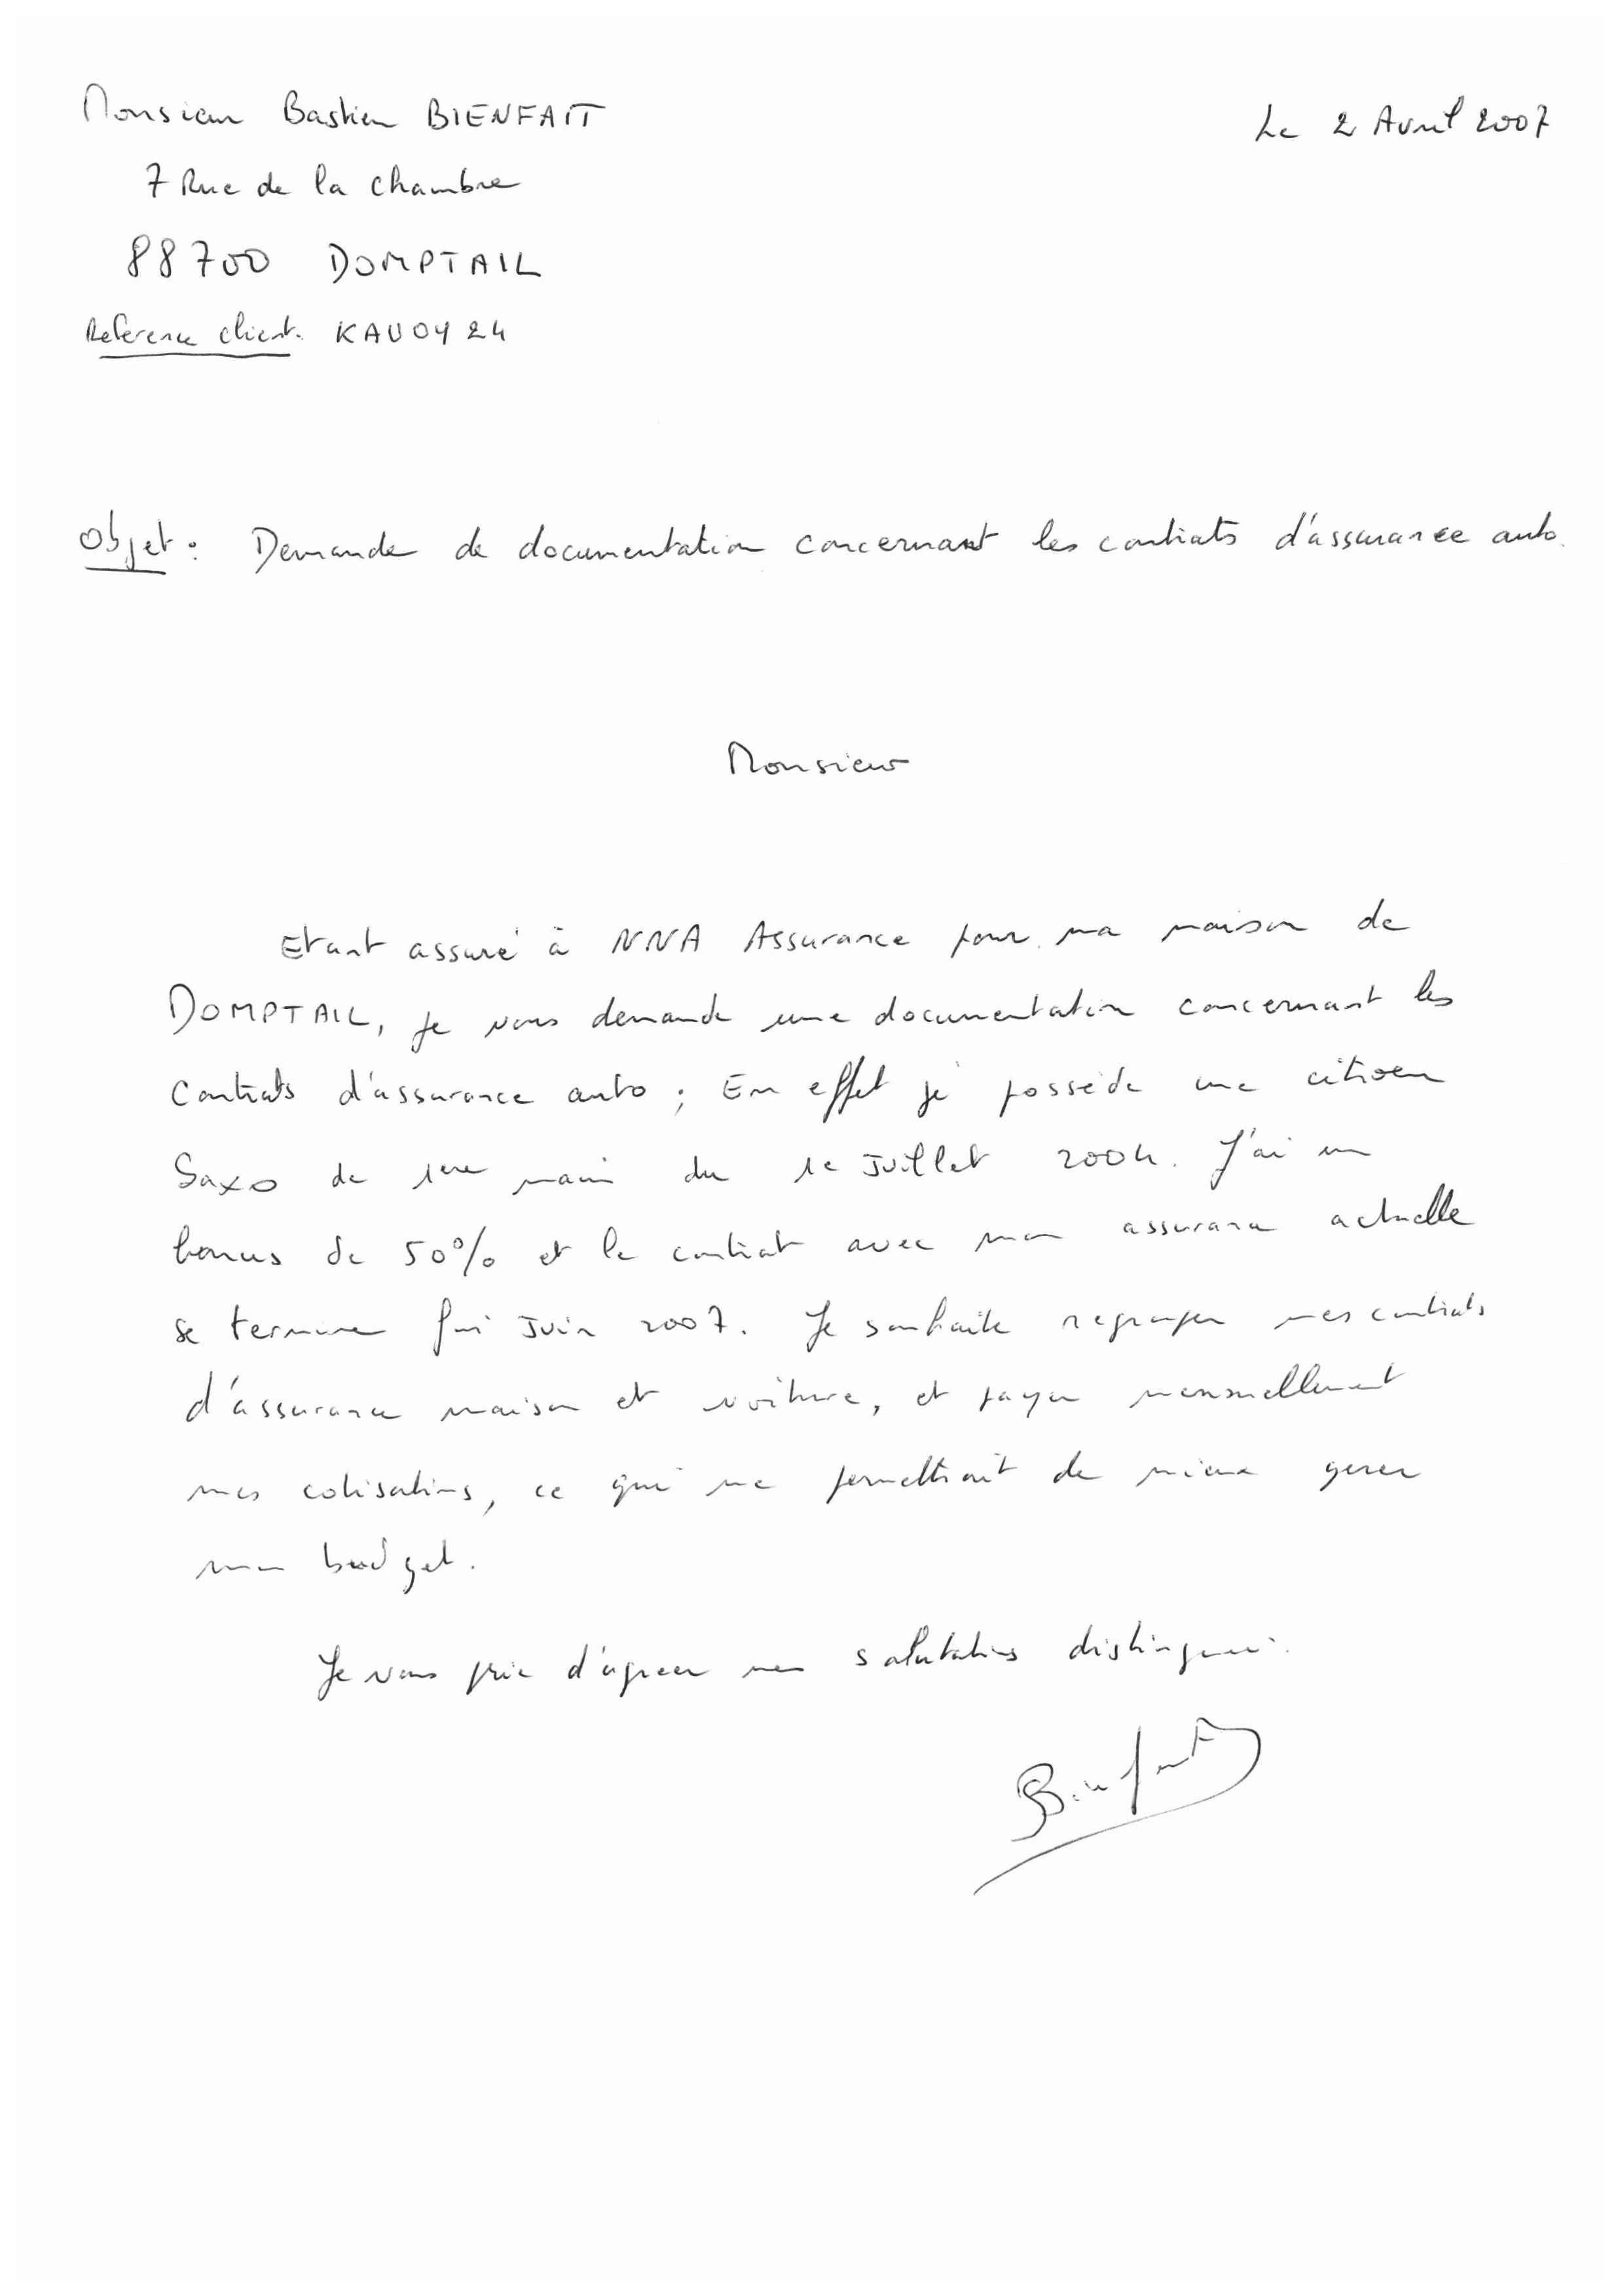 Monsieur Bastien BIENFAIT
Le 2 Avril 2007
7 Rue de la chambre
88700 DOMPTAIL
Reference client. KAUOY24
Objet : Demande de documentation concernant les contrats d'assurance auto.
Monsieur
Etant assuré à NNA Assurance pour ma maison de
DOMPTAIL, je vous demande une documentation concernant les
contrats d'assurance auto ; En effet je possède une citroen
Saxo de 1ere main du 1e Juillet 2004. J'ai un
bonus de 50% et le contrat avec mon assurance actuelle
se termine fin Juin 2007. Je souhaite regrouper mes contrats
d'assurance maison et voiture, et payer mensuellement
mes cotisations, ce qui me permettrait de mieux gerer
mon budget.
Je vous prie d'agreer mes salutations distinguées.
Bienfait